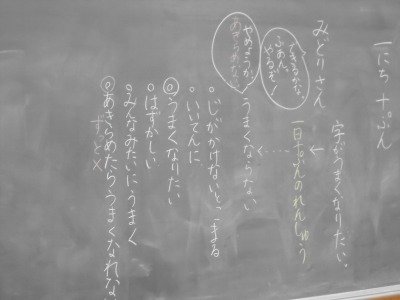 一にち 十ぷん
字がうまくなりたい。
みどりさん
できるかな
ふあん。
やるぞ!
一日十ぷんのれんしゅう
やめようか
あきらめない
うまくならない
・じがかけないとこまる
・いいてんに
◎うまくなりたい
・はずかしい
・みんなみたいにうまく
◎あきらめたらうまくなれな
ずっと×